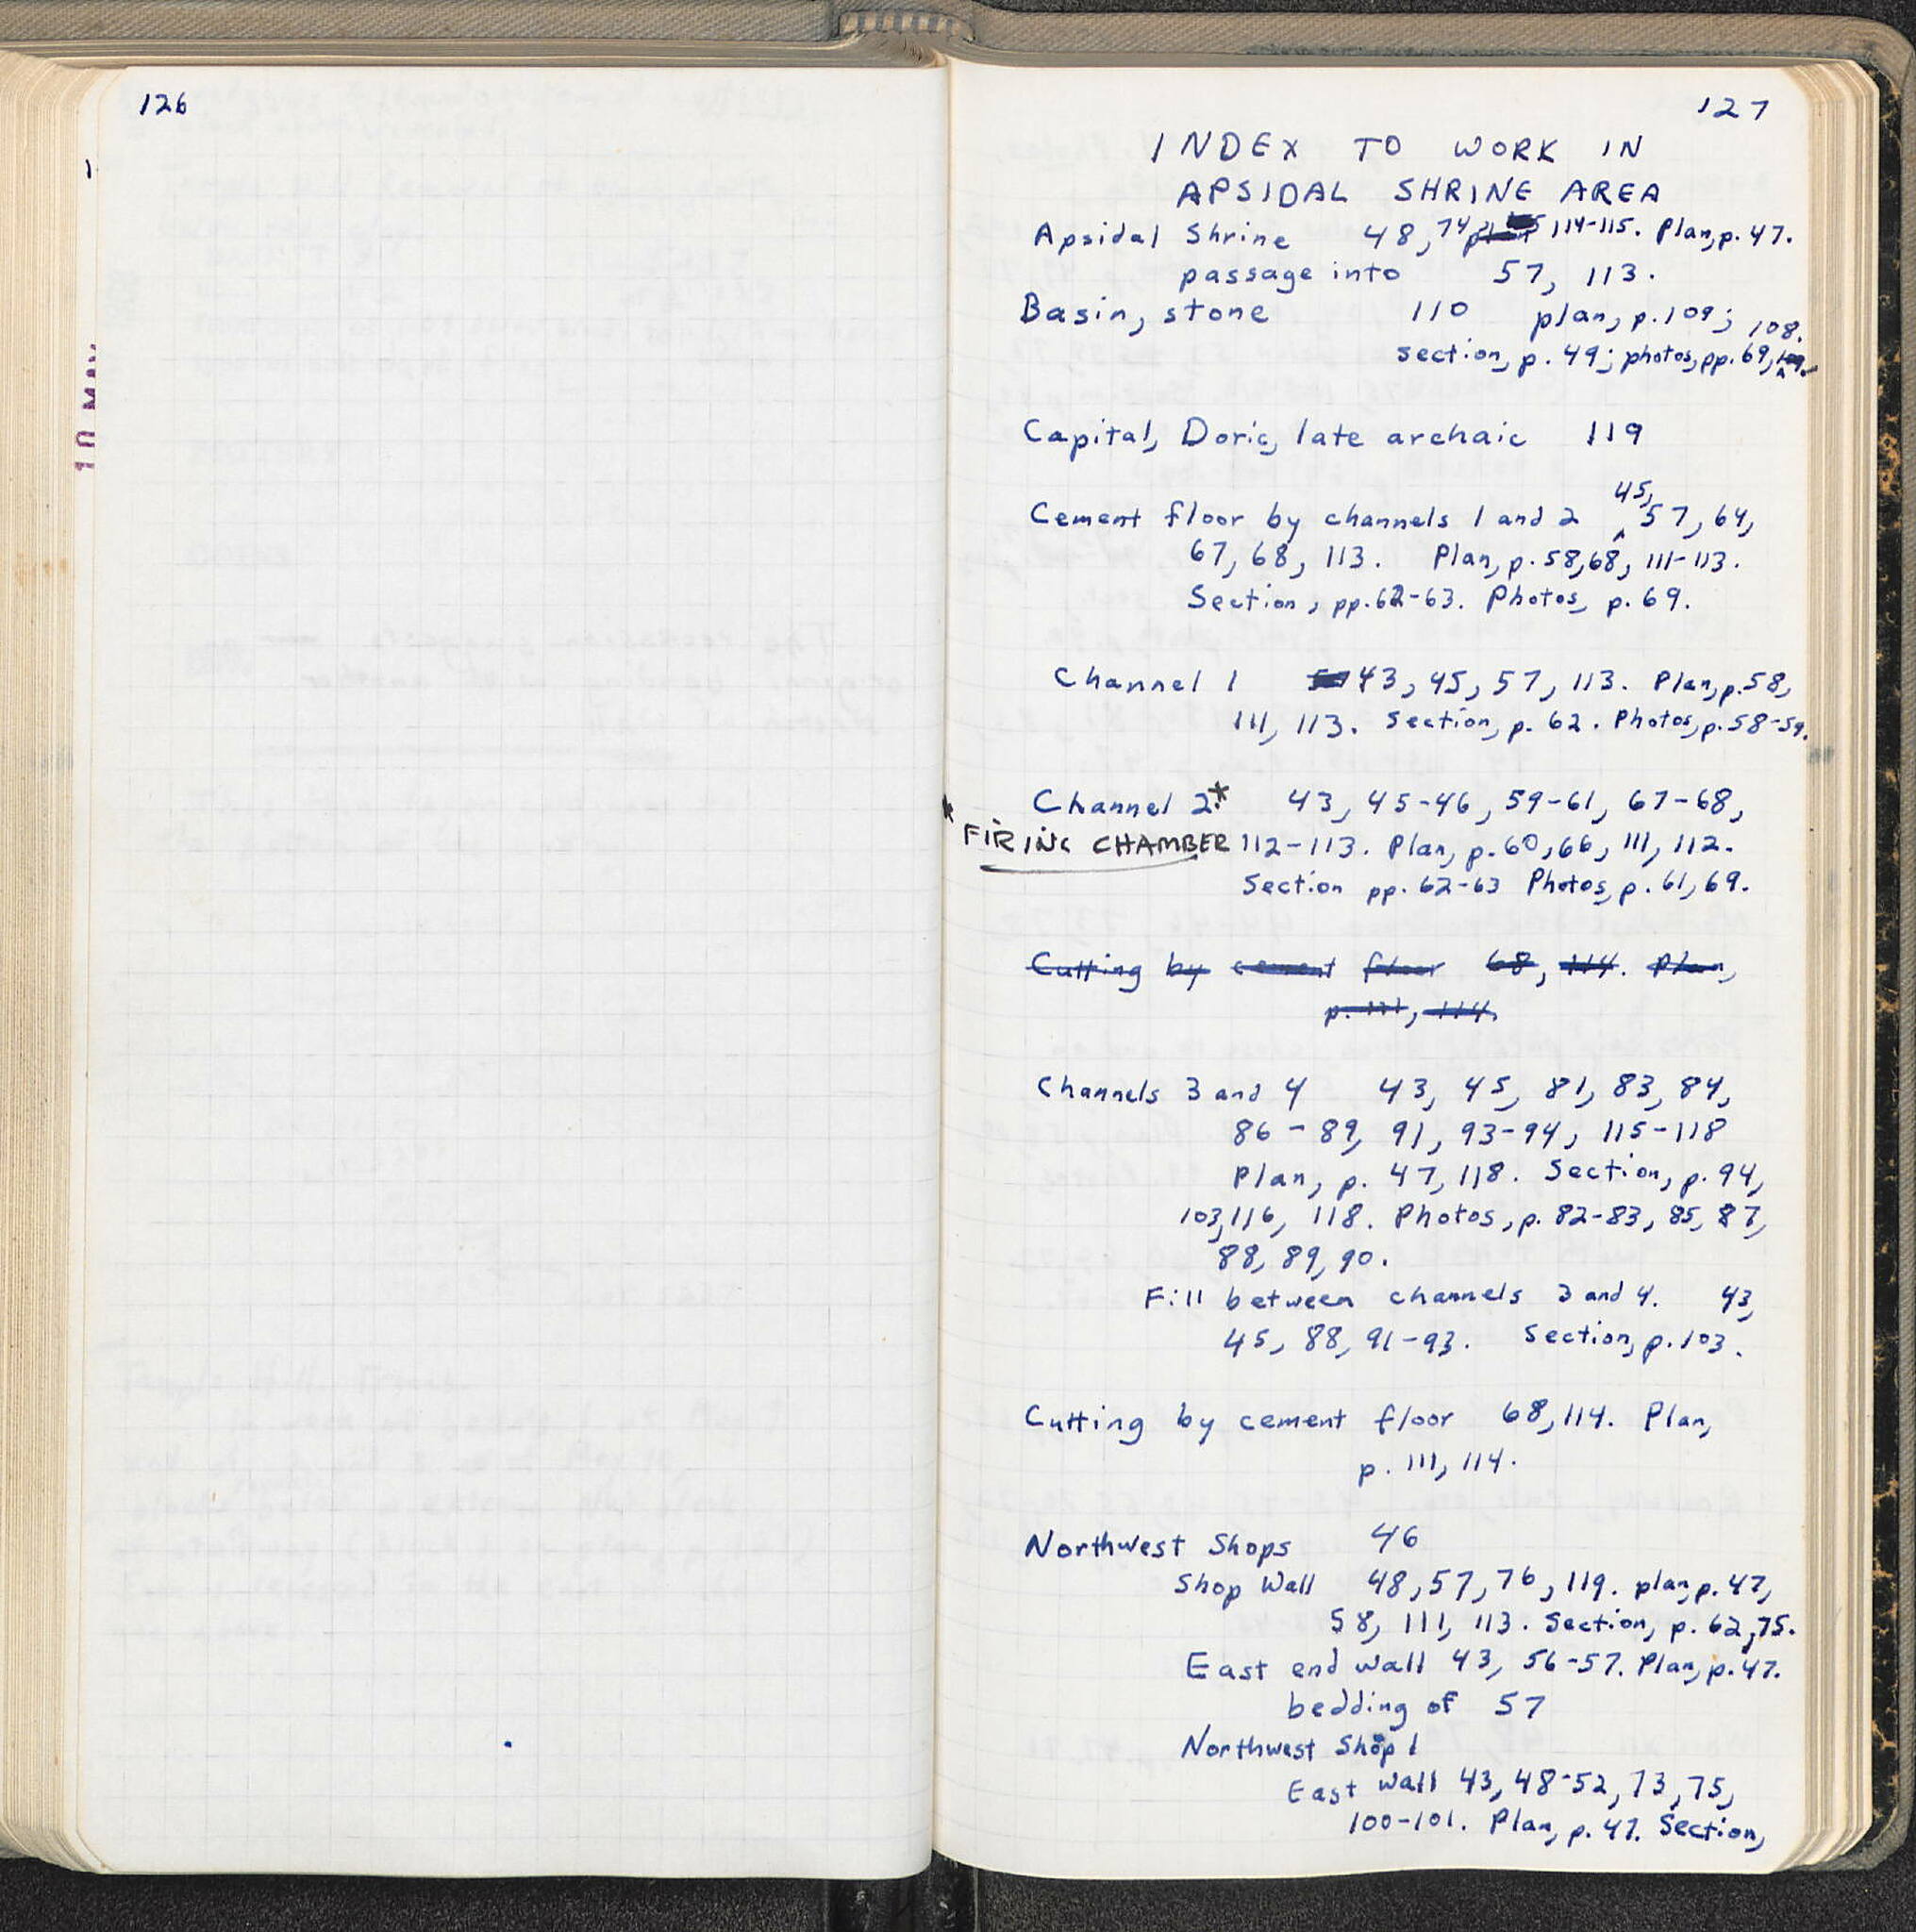 126
10 MAY
127
INDEX TO WORK IN
APSIDAL SHRINE AREA
Apsidal Shrine 48, 74, 114-115. Plan, p. 47.
passage into 57, 113.
Basin, stone 110 plan, p. 109; 108.
section, p. 49; photos, pp. 69, 109.
Capital, Doric, late archaic 119
45,
Cement floor by channels 1 and 2 ^ 57, 64,
67, 68, 113. Plan, p. 58, 68, 111-113.
Section, pp. 62-63. Photos, p. 69.
Channel 1 43, 45, 57, 113. Plan, p. 58,
111, 113. Section, p. 62. Photos, p. 58-59.
Channel 2* 43, 45-46, 59-61, 67-68,
* FIRING CHAMBER 112-113. Plan, p. 60, 66, 111, 112.
Section pp. 62-63 Photos, p. 61, 69.
Cutting by cement floor 68, 114. Plan,
p. 111, 114.
Channels 3 and 4 43, 45, 81, 83, 84,
86-89, 91, 93-94, 115-118
Plan, p. 47, 118. Section, p. 94,
103, 116, 118. Photos, p. 82-83, 85, 87,
88, 89, 90.
Fill between channels 3 and 4. 43,
45, 88, 91-93. Section, p. 103.
Cutting by cement floor 68, 114. Plan,
p. 111, 114.
Northwest Shops 46
Shop Wall 48, 57, 76, 119. plan, p. 47,
58, 111, 113. Section, p. 62, 75.
East end wall 43, 56-57. Plan, p. 47.
bedding of 57
Northwest Shop 1
East Wall 43, 48-52, 73, 75,
100-101. Plan, p. 47. Section,